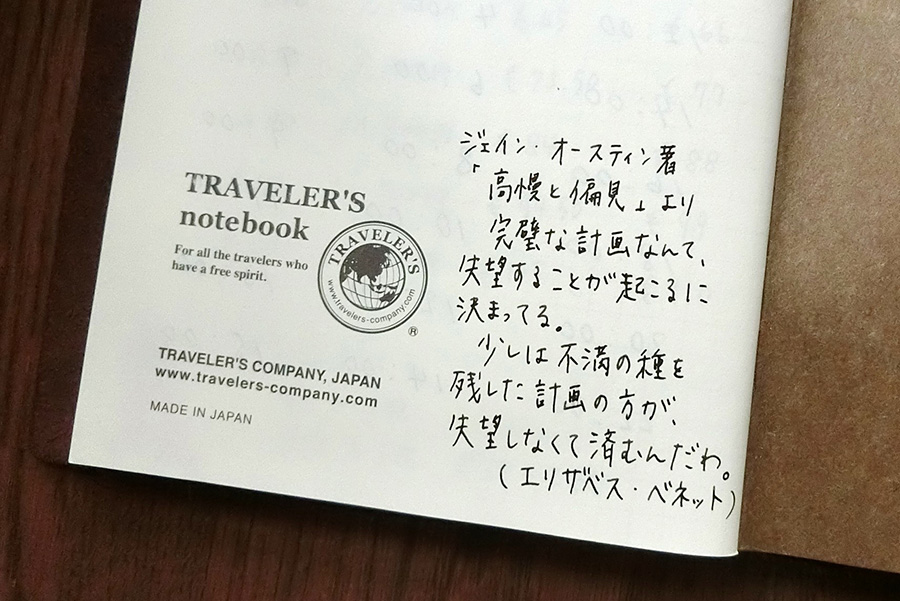 TRAVELER'S
notebook
For all the travelers who
have a free spirit.
TRAVELER'S
www.travelers-company.com
®
TRAVELER'S COMPANY, JAPAN
www.travelers-company.com
MADE IN JAPAN
ジェイン・オースティン著
「高慢と偏見」より
完璧な計画なんて、
失望することが起こるに
決まってる。
少しは不満の種を
残した計画の方が、
失望しなくて済むんだわ。
(エリザベス・ベネット)